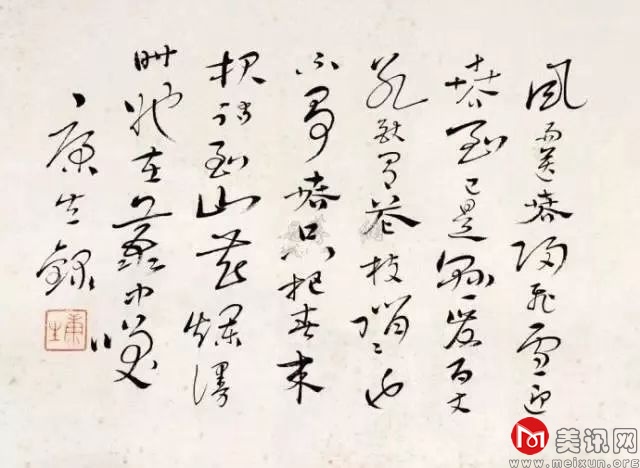 風雨送春歸飛雪迎
春到已是懸崖百丈
冰猶有花枝俏〻也
不爭春只把春來
報待到山花爛漫
時她在叢中笑
康生錄
康生
美讯网
www.meixun.org